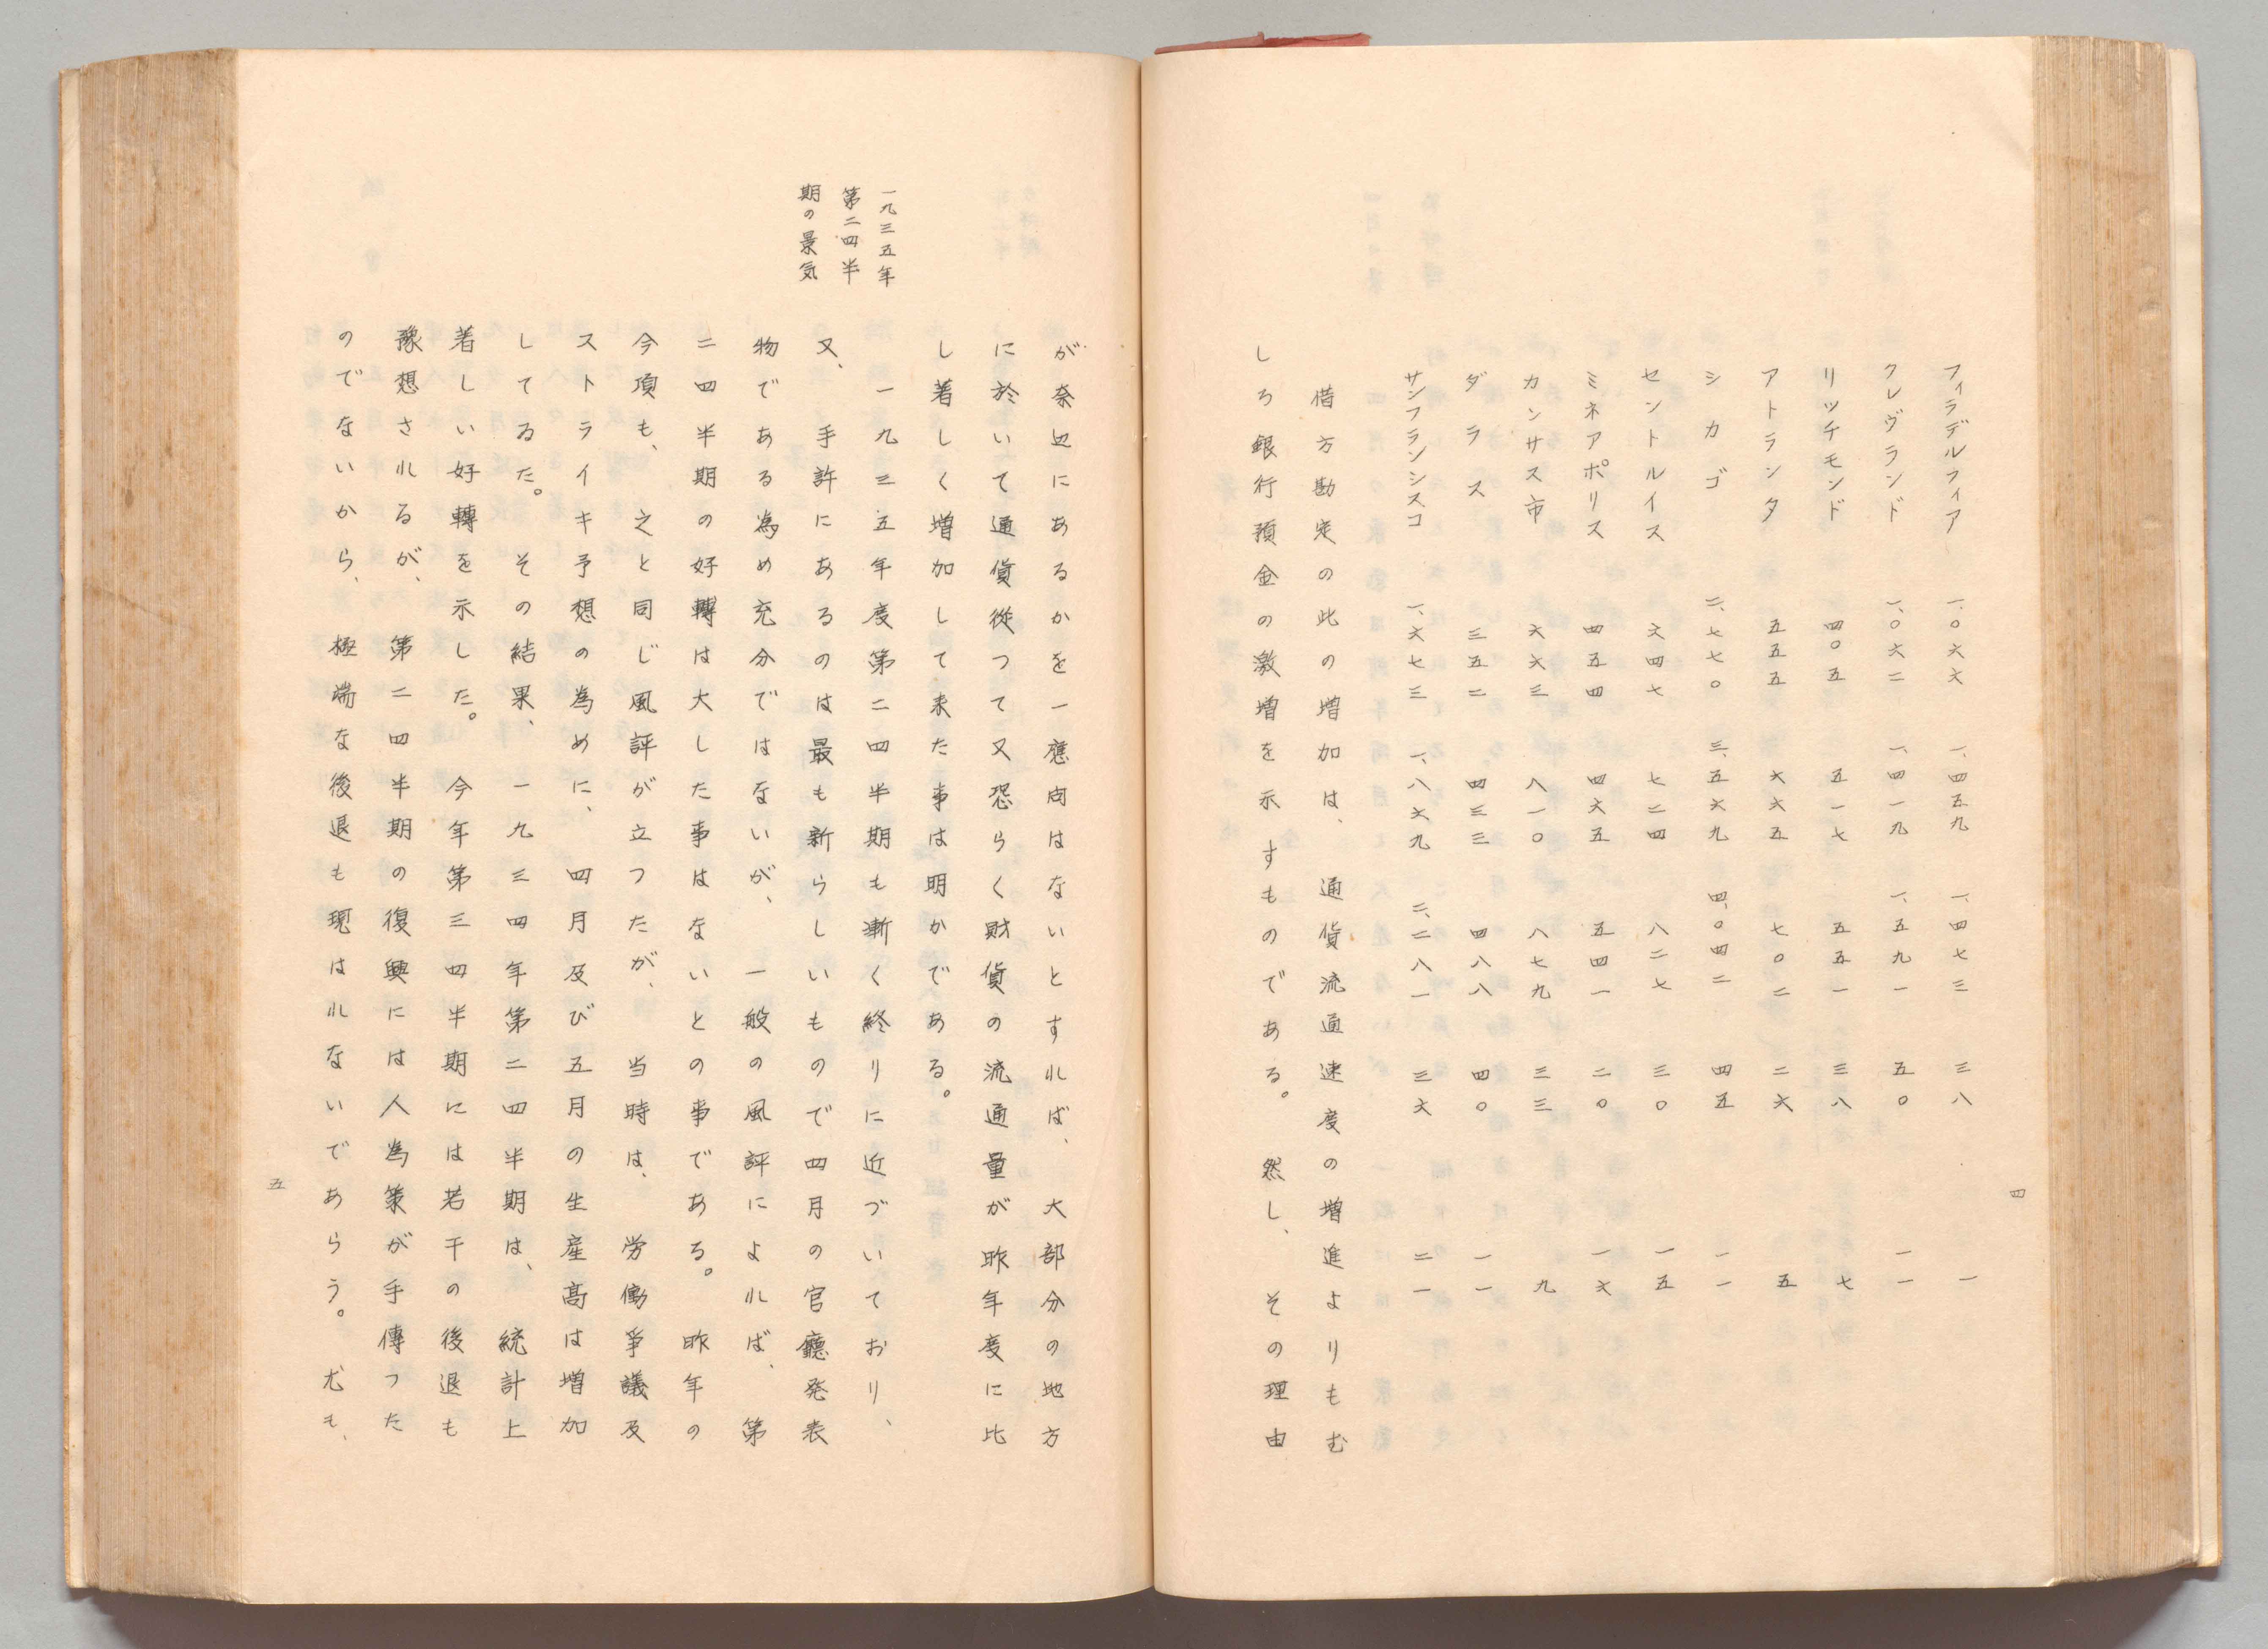 四
フィラデルフィア 一、〇六六 一、四五九 一、四七三 三八 一
クレヴランド 一、〇六二 一、四一九 一、五九一 五〇 一一
リッチモンド 四〇五 五一七 五五一 三八 七
アトランタ 五五五 六六五 七〇二 二六 五
シカゴ 二、七七〇 三、五六九 四、〇四二 四五 一一
セントルイス 六四七 七二四 八二七 三〇 一五
ミネアポリス 四五四 四六五 五四一 二〇 一六
カンサス市 六六三 八一〇 八七九 三三 九
ダラス 三五二 四三三 四八八 四〇 一一
サンフランシスコ 一、六七三 一、八六九 二、二八一 三六 二一
借方勘定の此の増加は、通貨流通速度の増進よりもむ
しろ銀行預金の激増を示すものである。然し、その理由
が奈辺にあるかを一應向はないとすれば、大部分の地方
に於いて通貨従つて又恐らく財貨の流通量が昨年度に比
し著しく増加して来た事は明かである。
一九三五年
第二四半
期の景気
一九三五年度第二四半期も漸く終りに近づいており、
又、手許にあるのは最も新らしいもので四月の官廳発表
物である為め充分ではないが、一般の風評によれば、第
二四半期の好轉は大した事はないとの事である。昨年の
今項も、之と同じ風評が立つたが、当時は、労働爭議及
ストライキ予想の為めに、四月及び五月の生産高は増加
してゐた。その結果、一九三四年第二四半期は、統計上
著しい好轉を示した。今年第三四半期には若干の後退も
豫想されるが、第二四半期の復興には人為策が手傳つた
のでないから、極端な後退も現はれないであらう。尤も、
五